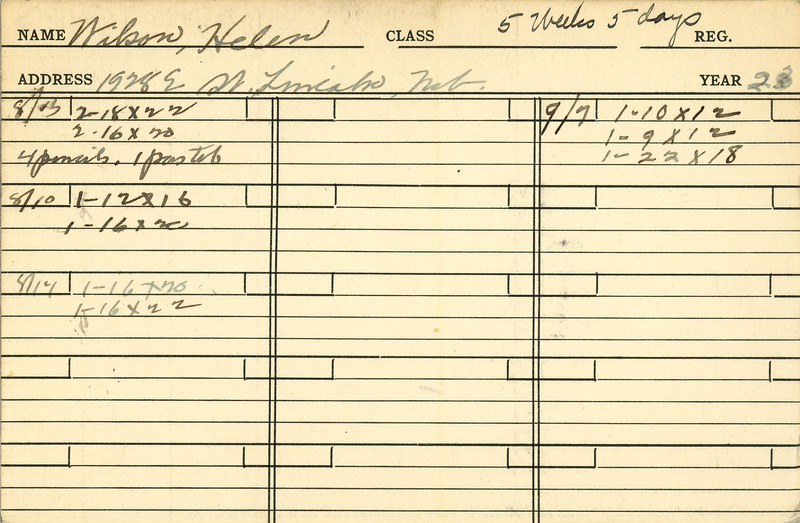 NAME Wilson, Helen CLASS 5 Weeks 5 days REG.
ADDRESS 1928 E St. Lincoln, Neb. YEAR 23
8/13 2-18x22
2-16x20
4 pencils. 1 pastel
8/10 1-12x16
1-16x20
8/14 1-16x20
1-16x22
9/7 1-10x12
1-9x12
1-22x18